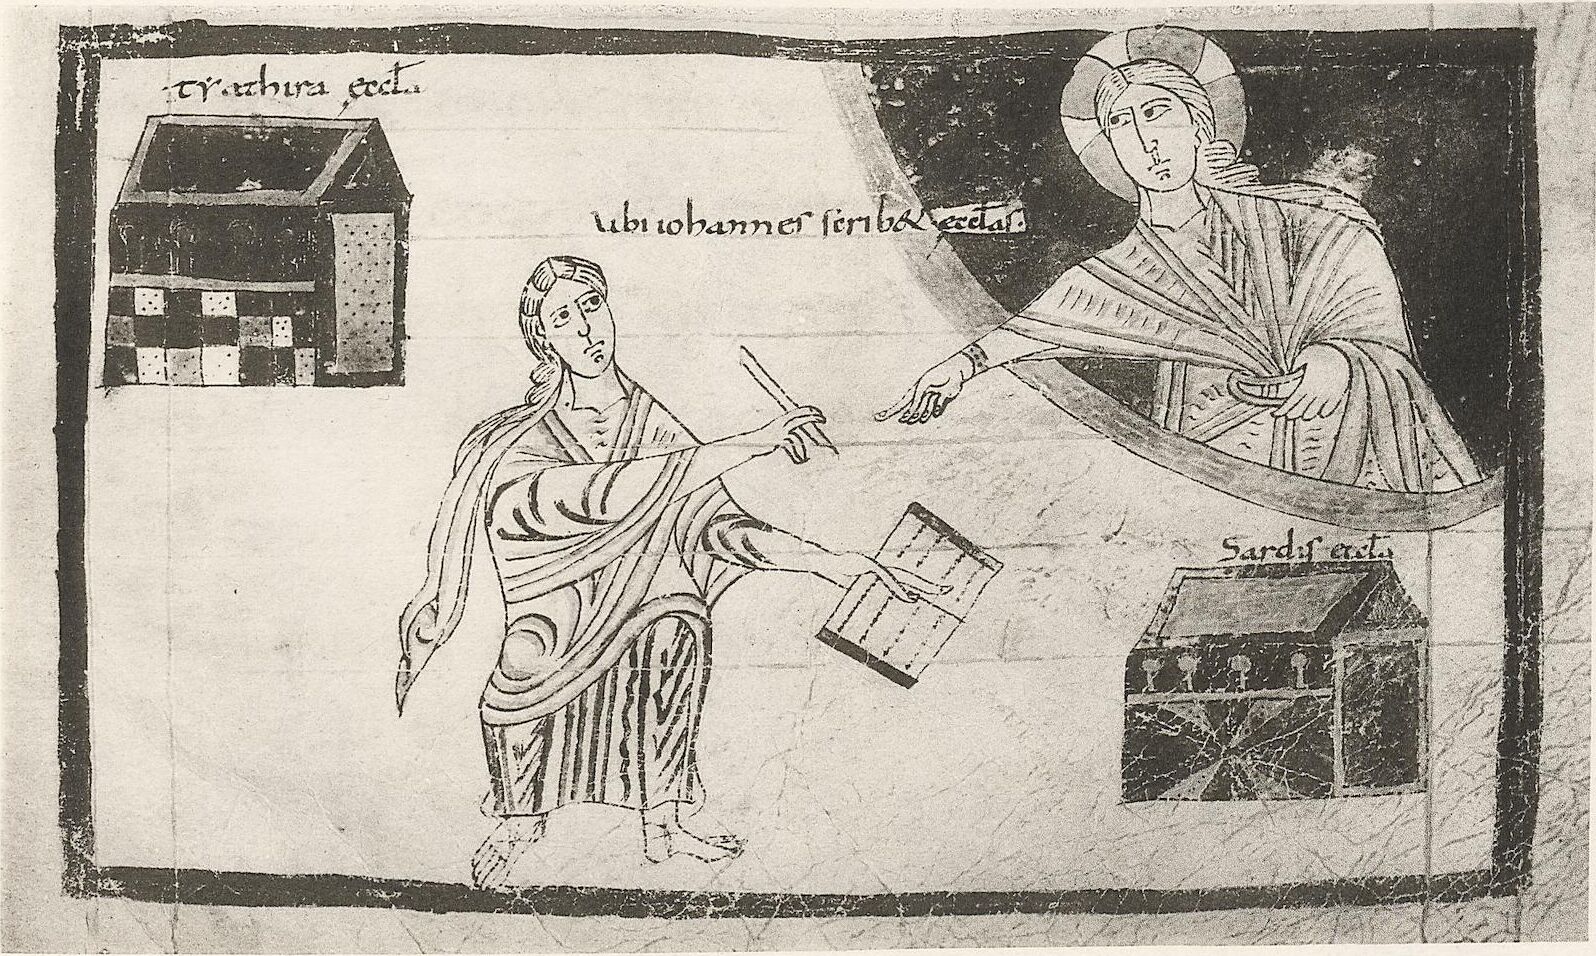 tyathira eccla
ubi iohannes scrib& ecclas.
Sardis eccla